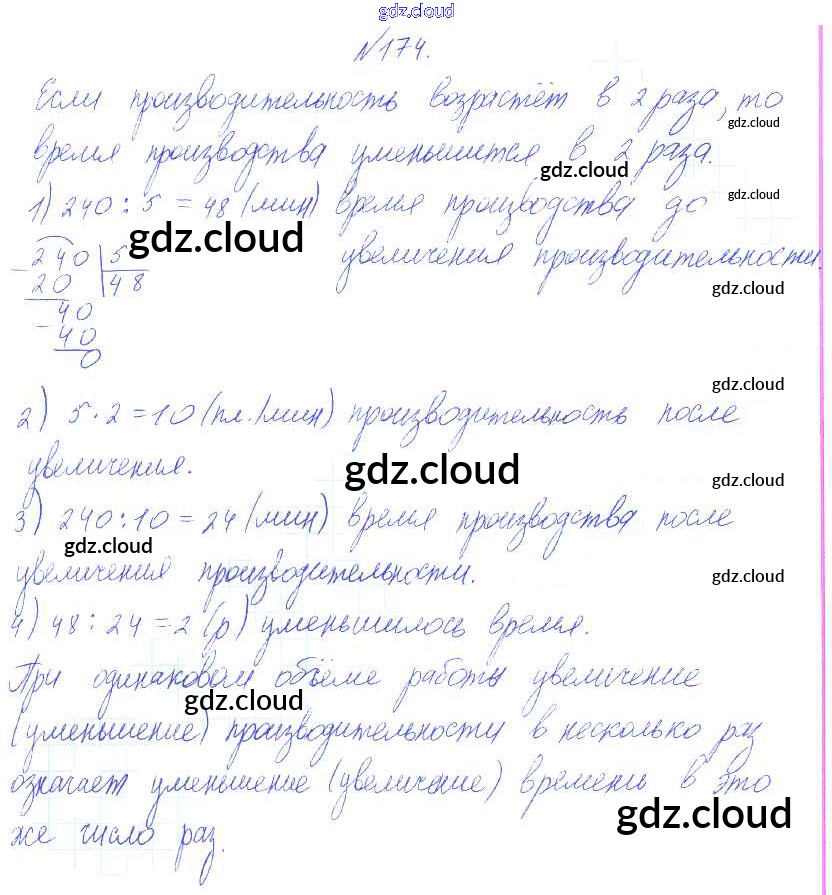 gdz.cloud
№174.
Если производительность возрастёт в 2 раза, то
gdz.cloud
время производства уменьшится в 2 раза.
gdz.cloud
1) 240 : 5 = 48 (мин) время производства до
gdz.cloud
увеличения производительности.
gdz.cloud
240 | 5
- 20 | 48
40
- 40
0
gdz.cloud
gdz.cloud
2) 5 · 2 = 10 (пл./мин) производительность после
увеличения.
gdz.cloud
gdz.cloud
3) 240 : 10 = 24 (мин) время производства после
gdz.cloud
увеличения производительности.
gdz.cloud
4) 48 : 24 = 2 (р) уменьшилось время.
При одинаковом объёме работы увеличение
gdz.cloud
(уменьшение) производительности в несколько раз
означает уменьшение (увеличение) времени в это
gdz.cloud
же число раз.